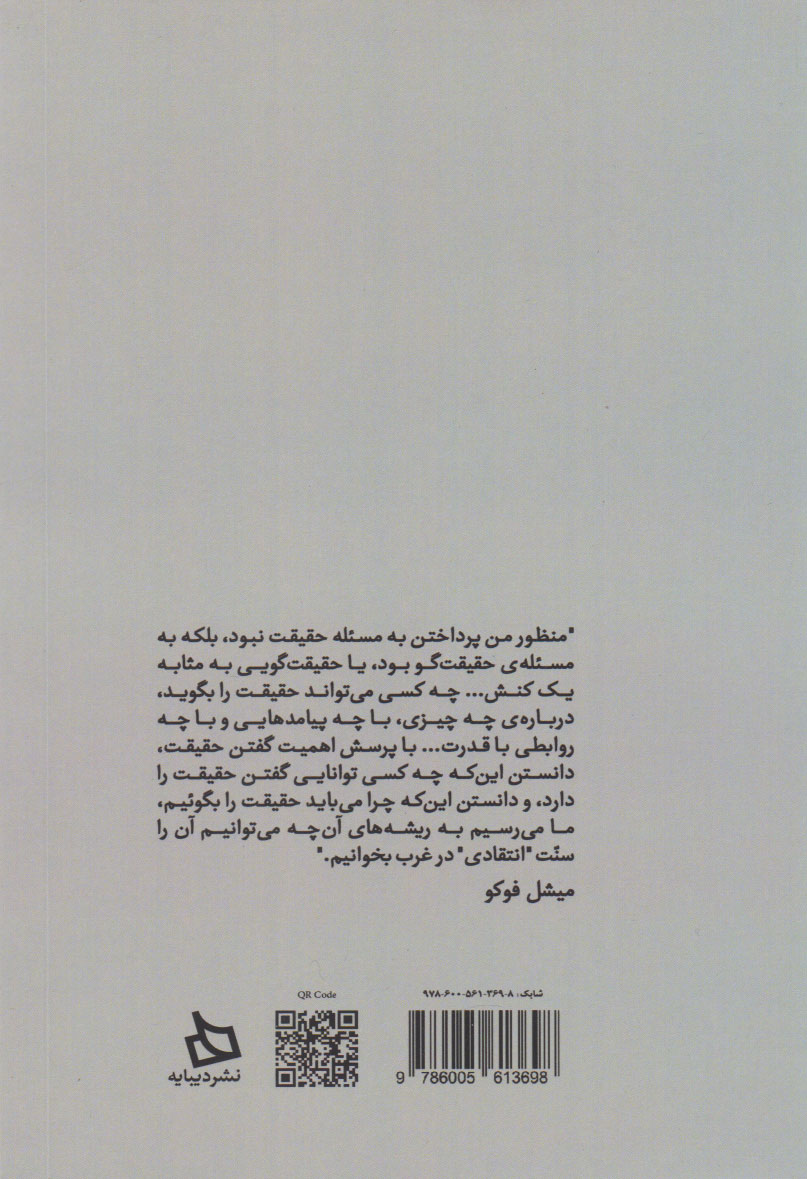 "منظور من پرداختن به مسئله حقیقت نبود، بلکه به
مسئله‌ی حقیقت‌گو بود، یا حقیقت‌گویی به مثابه
یک کنش... چه کسی می‌تواند حقیقت را بگوید،
درباره‌ی چه چیزی، با چه پیامدهایی و با چه
روابطی با قدرت... با پرسش اهمیت گفتن حقیقت،
دانستن این‌که چه کسی توانایی گفتن حقیقت را
دارد، و دانستن این‌که چرا می‌باید حقیقت را بگوئیم،
ما می‌رسیم به ریشه‌های آن‌چه می‌توانیم آن را
سنّت "انتقادی" در غرب بخوانیم."
میشل فوکو
شابک: ۹۷۸-۶۰۰-۵۶۱-۳۶۹-۸
QR Code
9 786005 613698
نشر دیبایه